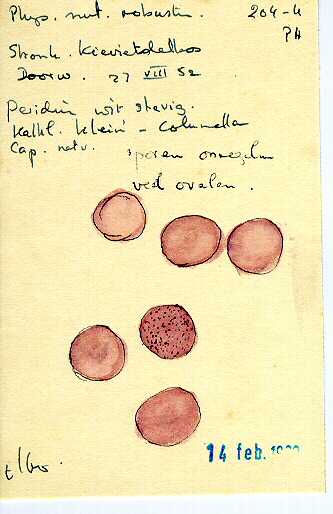 Phys. nut. robustum. 204-4
PH
Stronk. Kievietsdellos
Doorw. 27 VIII 52
Peridium wit stevig.
Kalkl. klein - Columella
Cap. netv. sporen onregelm
veel ovalen.
14 feb.